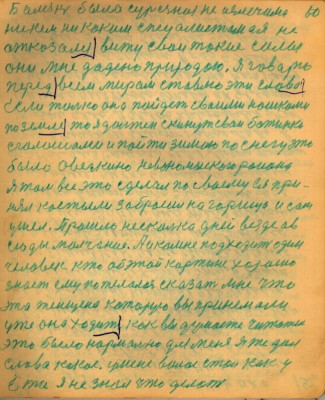 60
болезнь была сурезная не излечима
никем никаким специалистам я не
атказал веру свои такие силы
они мне дадено природою, я говорю
перед всем миром ставлю эти слова
если только она пойдет своими ножками
по земле то я должен скинуть свои ботинки
с галошами и пойти зимою по снегу это
было Овечкино Невиномыского района
я там все это сделал по своему ее при-
нял костыли забросил на горище и сам
ушел. Прошло несколко дней везде ав
сюды молчание. Ако мне подходит один
человек кто об этой картине хорошо
знает ему пожелалос сказат мне что
эта женщена которую вы принемали
уже она ходит как вы думаете читатель
это было нормально для меня я те дал
слова какое, у мене волос стои как у
Ежа я не знал что делат